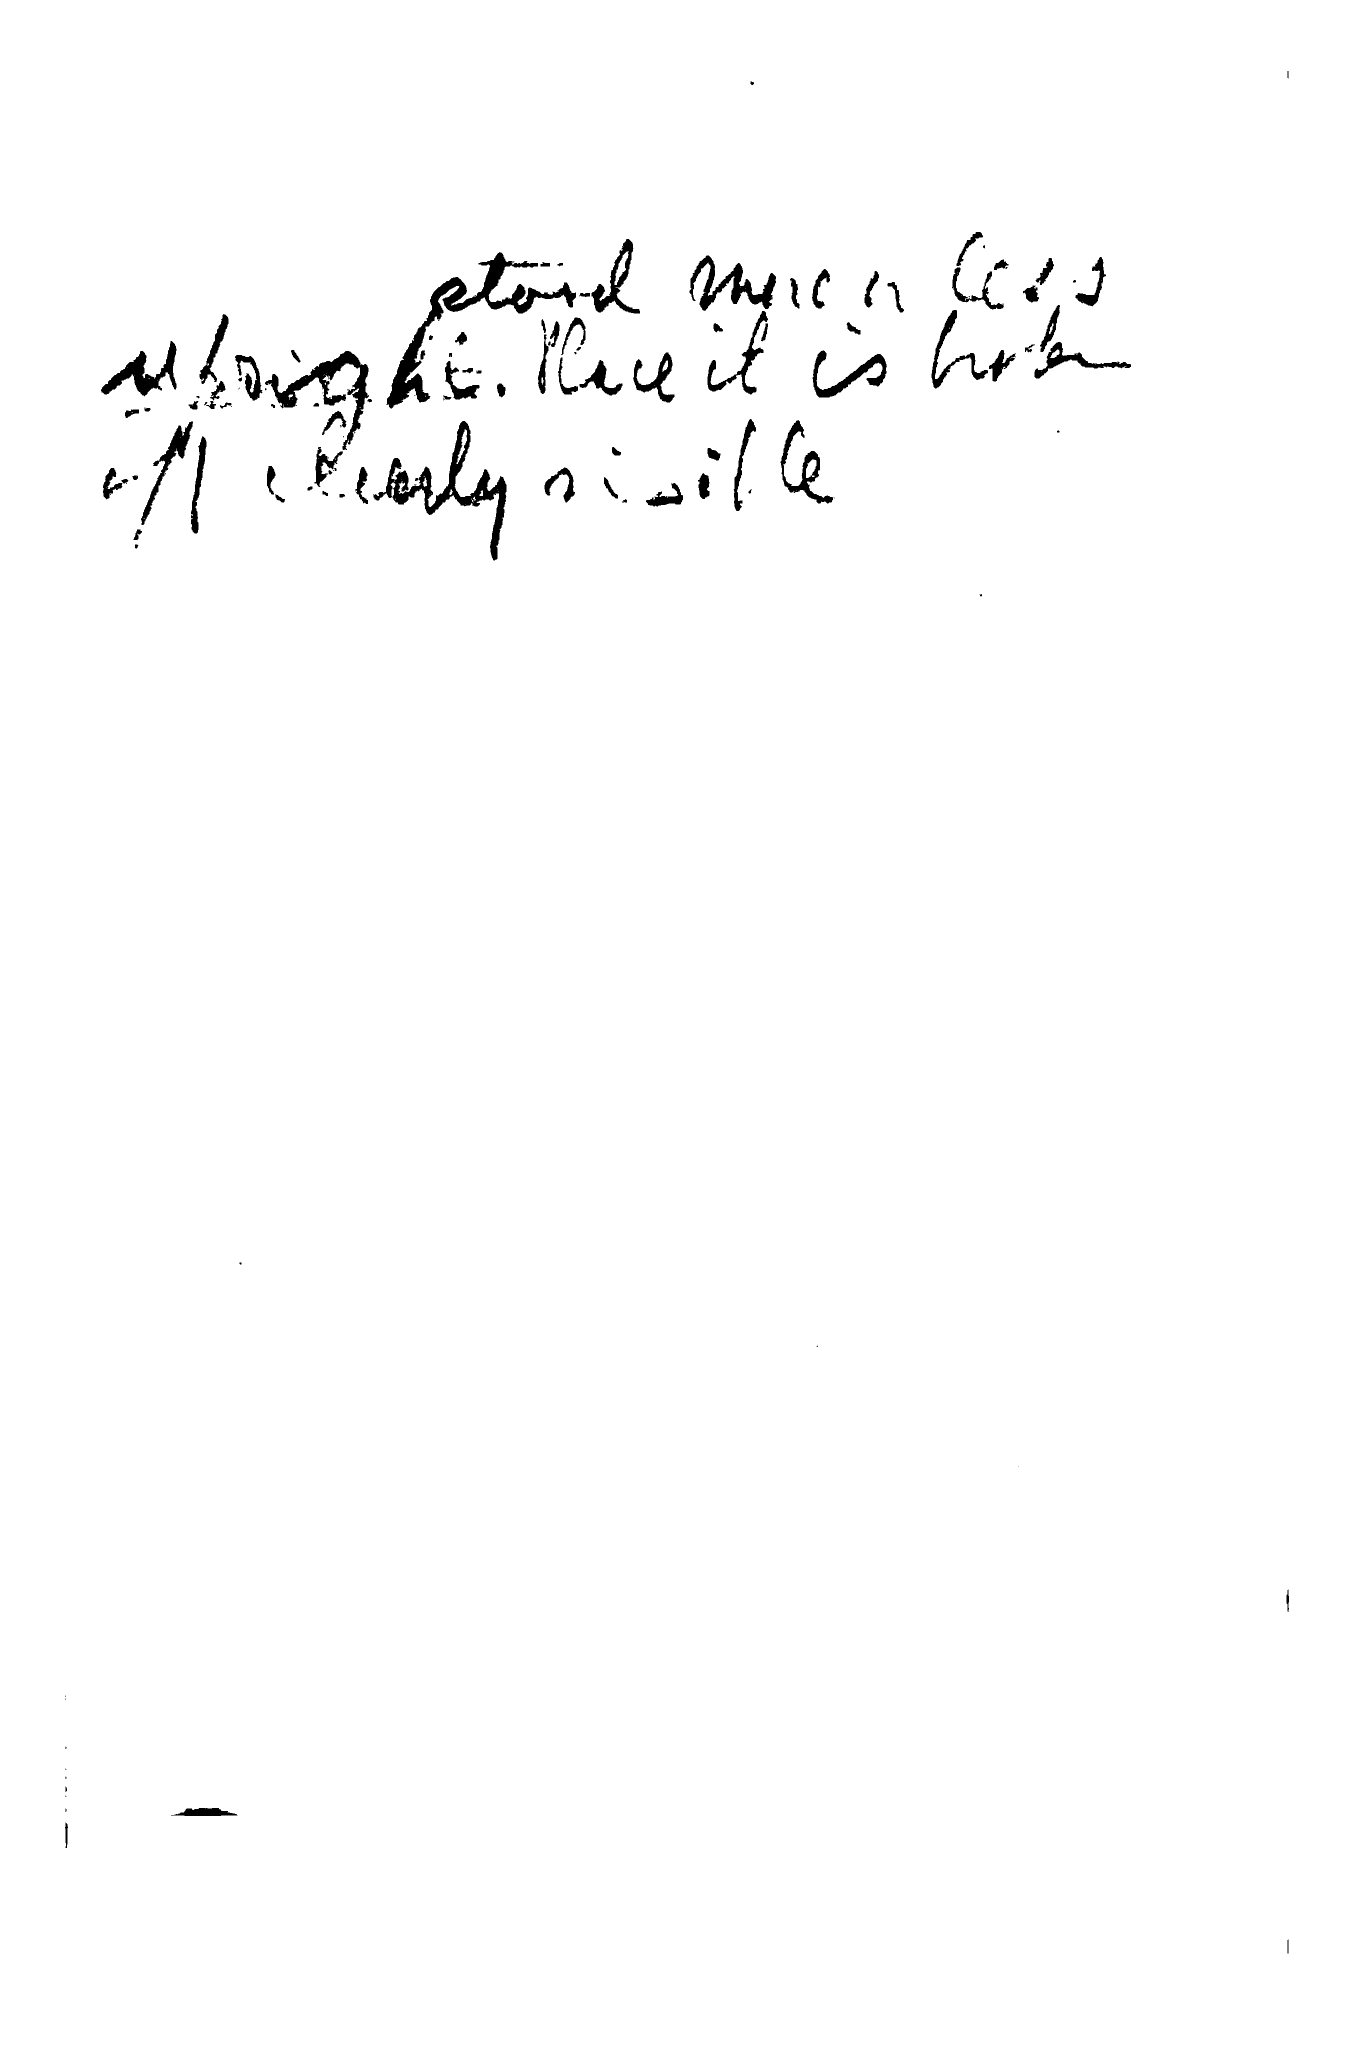 stood more or less
upright. Place it is broken
off clearly visible